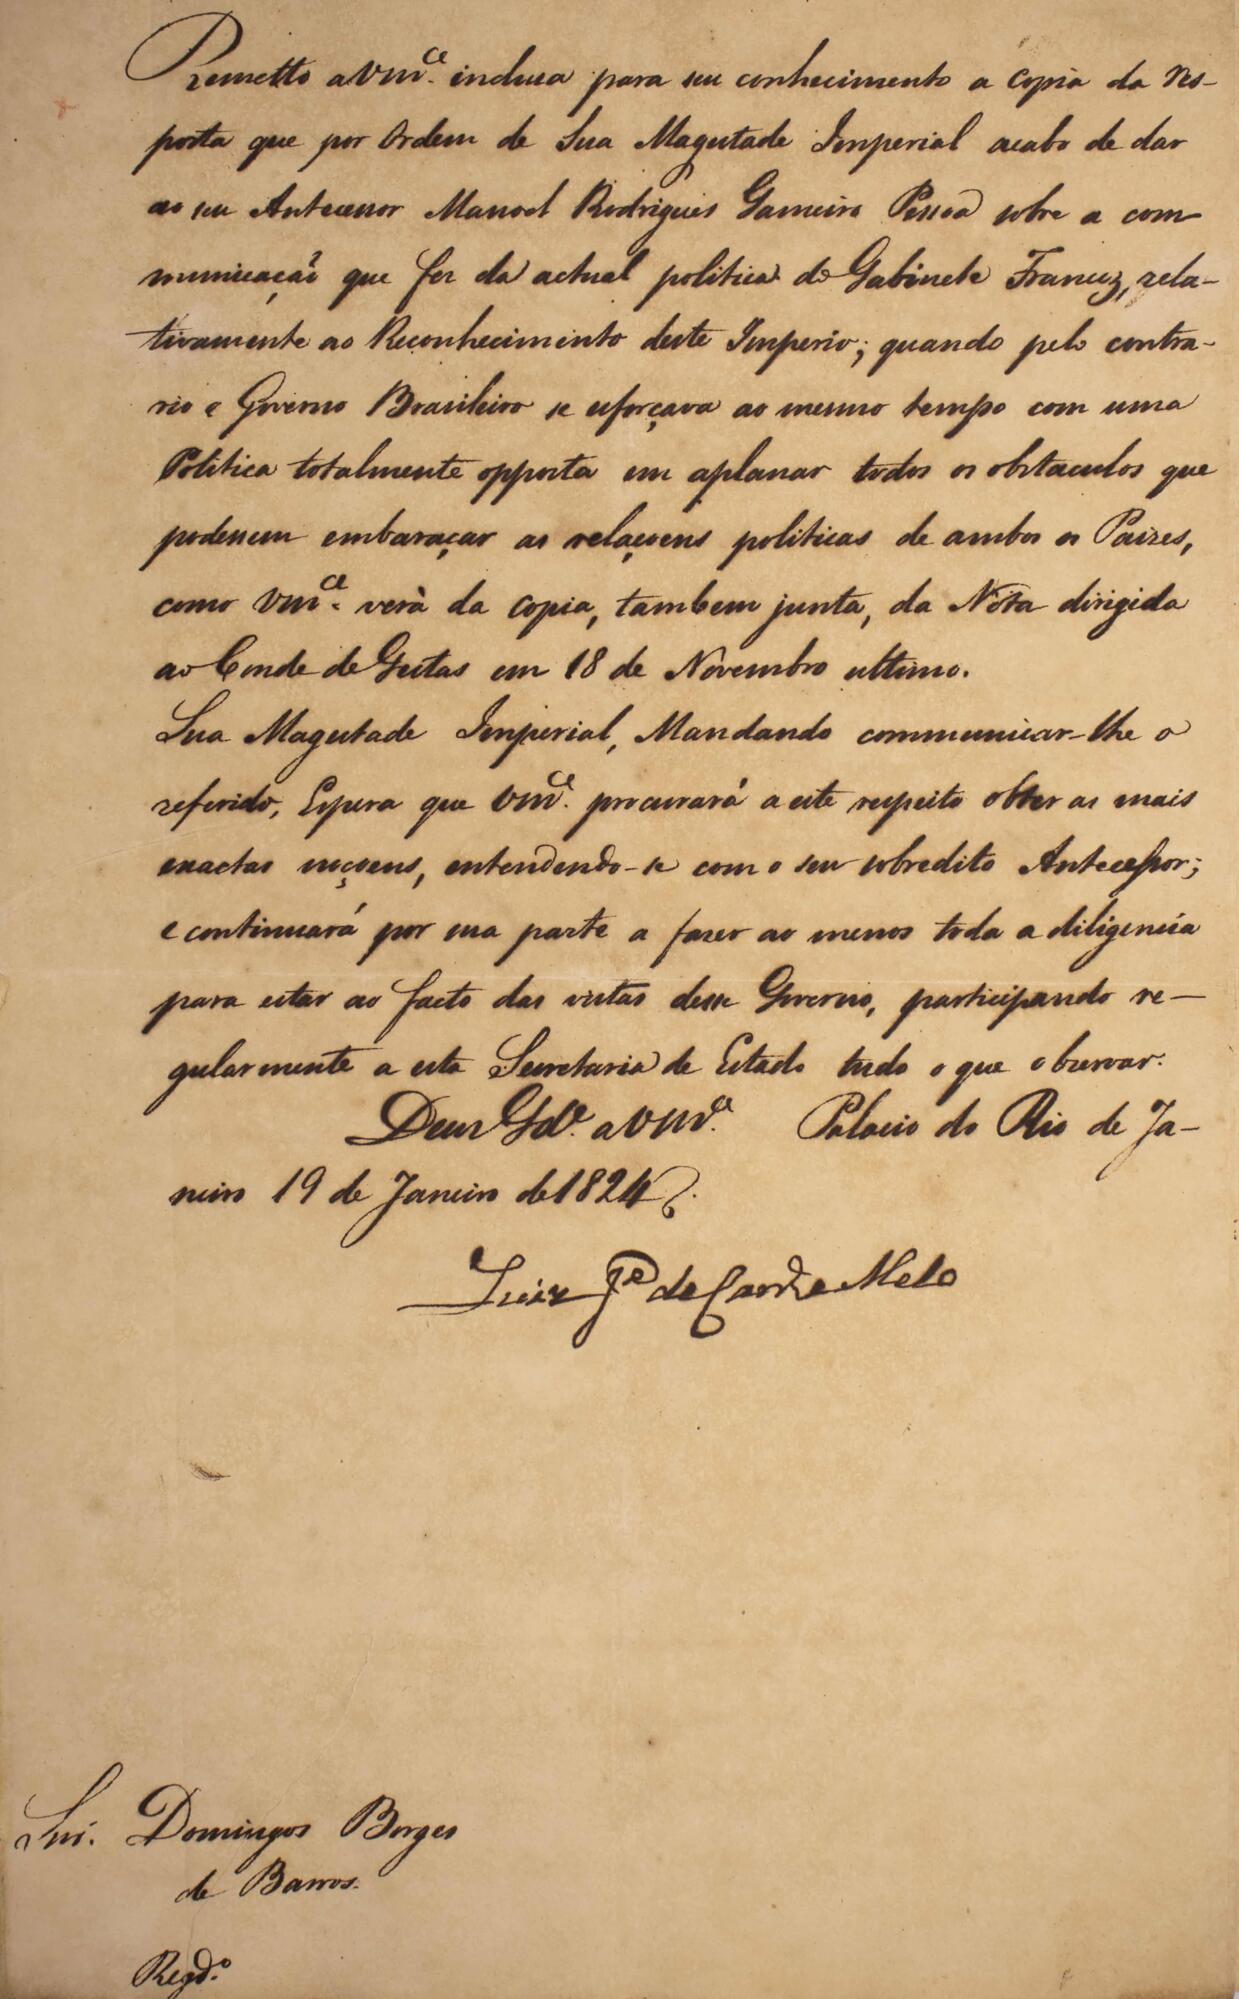 Remetto a Vm.ce inclusa para seu conhecimento a copia da res-
posta que por Ordem de Sua Magestade Imperial acabo de dar
ao seu Antecessor Manoel Rodrigues Gameiro Pessoa sobre a com-
municação que fez da actual politica do Gabinete Francez, rela-
tivamente ao Reconhecimento deste Imperio; quando pelo contra-
rio o Governo Brasileiro se esforçava ao mesmo tempo com uma
Politica totalmente opposta em aplanar todos os obstaculos que
podessem embaraçar as relaçoens politicas de ambos os Paizes,
como Vm.ce verà da copia, tambem junta, da Nota dirigida
ao Conde de Gestas em 18 de Novembro ultimo.
Sua Magestade Imperial, Mandando communicar-lhe o
referido, Espera que Vm.ce procurará a este respeito obter as mais
exactas noçoens, entendendo-se com o seu sobredito Antecessor;
e continuará por sua parte a fazer ao menos toda a diligencia
para estar ao facto das vistas desse Governo, participando re-
gularmente a esta Secretaria de Estado tudo o que observar.
Deus G.de a Vm.ce Palacio do Rio de Ja-
neiro 19 de Janeiro de 1824.
Luiz J.e de Carv.o e Mello
Snr. Domingos Borges
de Barros.
Regd.o